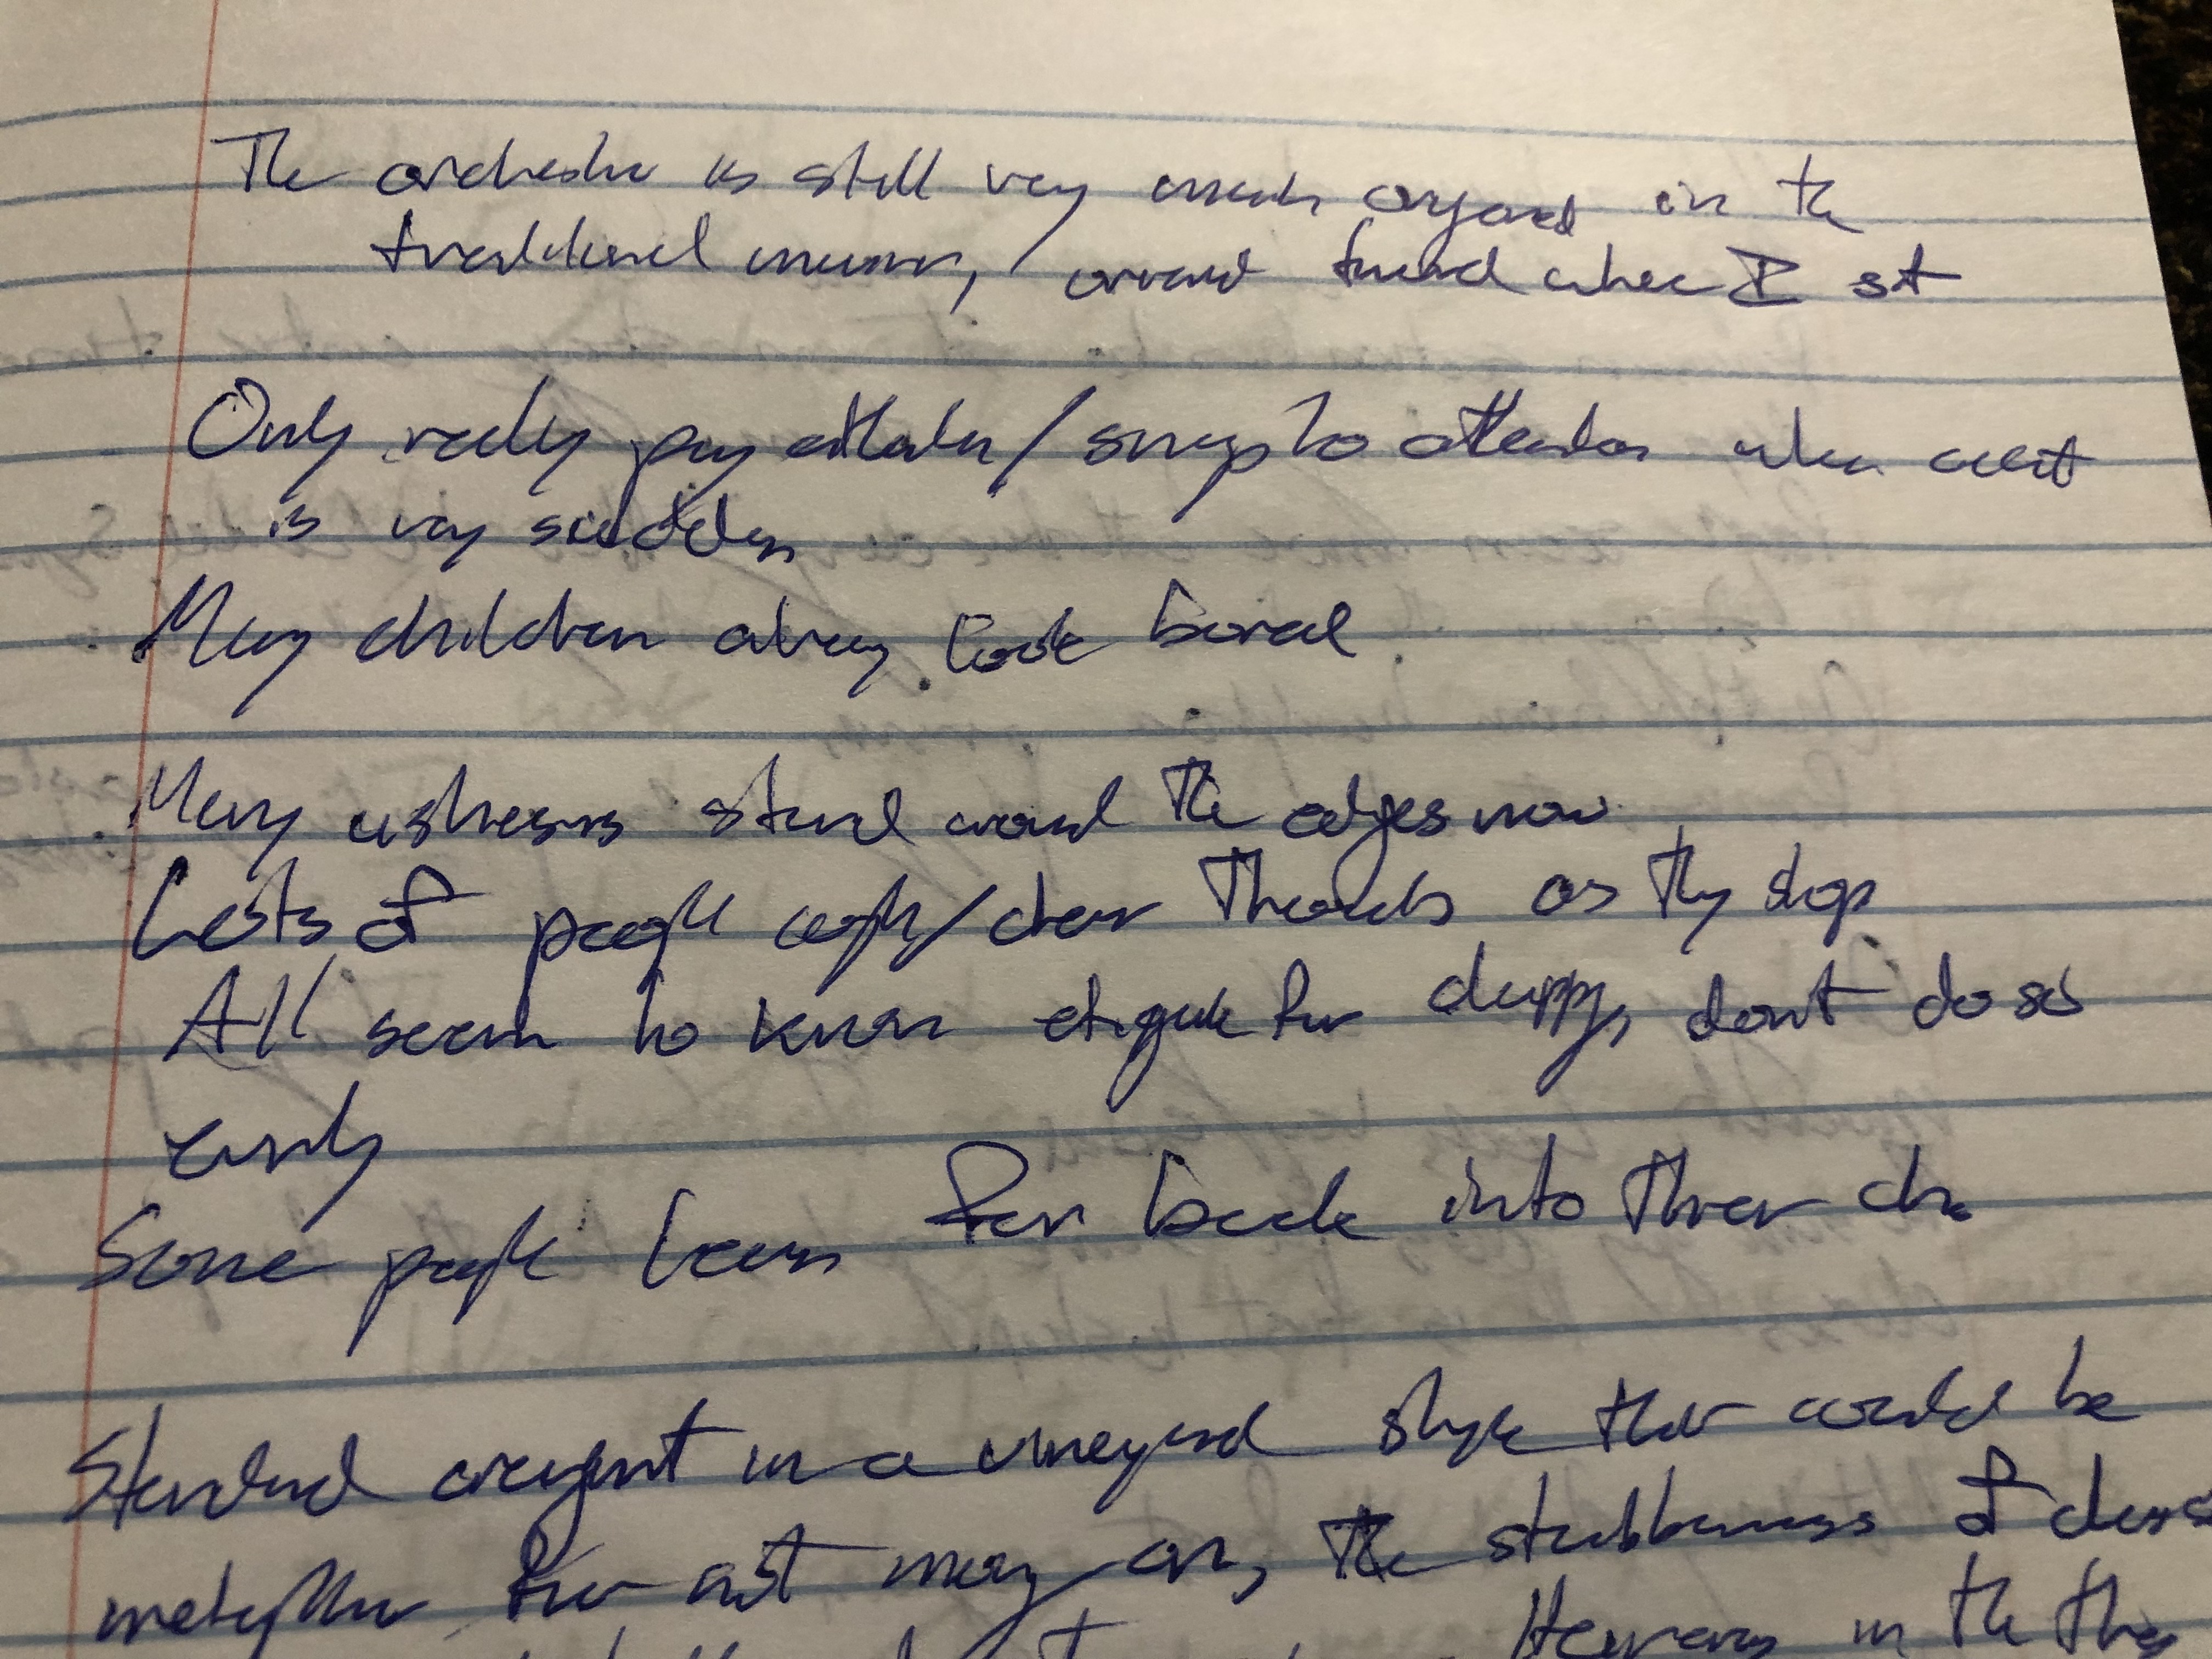 The orchestra is still very much organized in the
traditional manner, around toward where I sit
Only really pay attention / snap to attention when
is very sudden
Many children already look bored
Many ushers stand around the edges now
Lots of people cough/clear throats as they stop
All seem to know etiquette for clapping, don't do so
early
Some people lean far back into their
Standard arrangement in a vineyard style that could be
metaphor for not moving on, the stubbornness of
in the